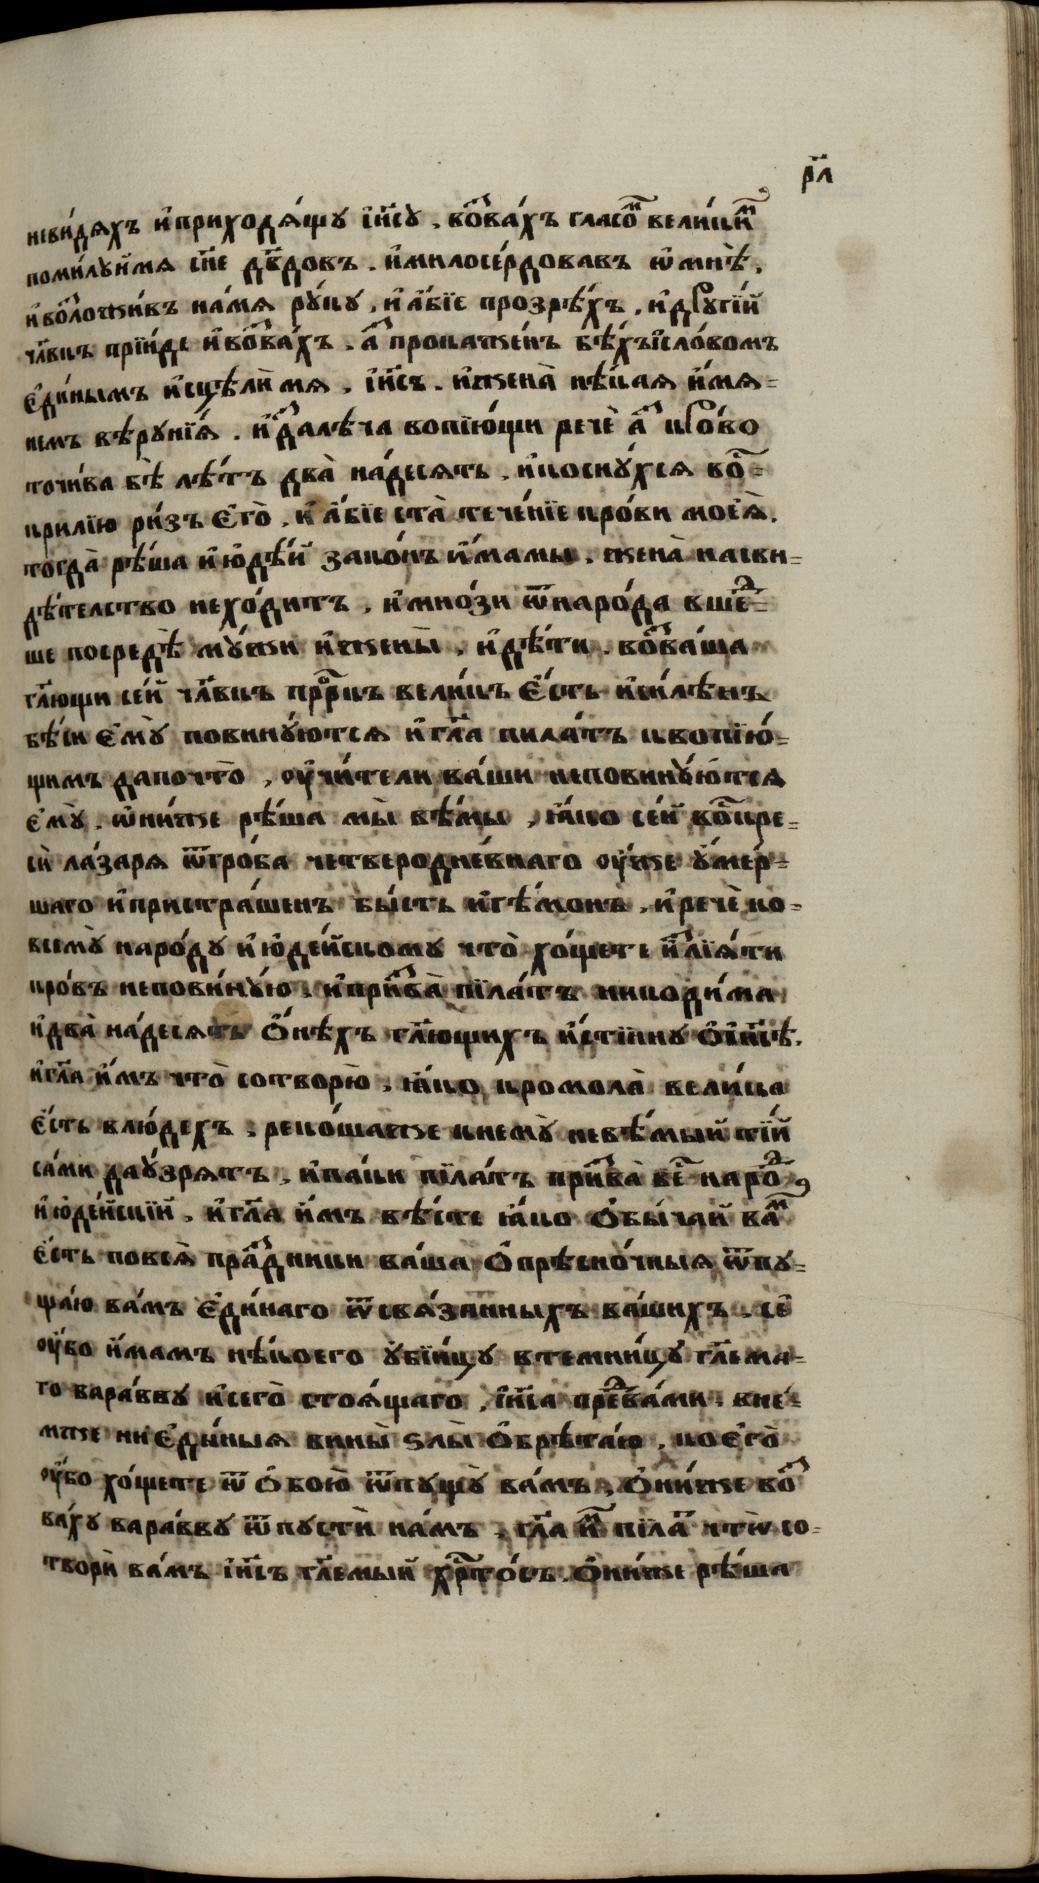 р҃л
невѝдяхъ и҆приходя́щу і҆и҃су , во̾ва́хъ гласо̾ вели́ки̾
поми́луй мя сн҃е дв҃довъ . и҆милосе́рдовавъ ѡ҆мнѣ̀ ,
и҆во̾ложи́въ на́мя ру́ку , и҆а́бїе прозрѣ́хъ , и҆другі́й
чл҃вкъ прїи́де и҆во̾ва́хъ . а̾ прокаже́нъ бѣ́хъ и҆сло́вомъ
є҆ди́нымъ и҆сцѣли̾ мя , і҆и҃съ . и҆жена̀ нѣ́кая и҆́мя=
немъ вѣрунїя́ . и҆̾дале́ча вопїю́щи речѐ а̾ кро́во
точи́ва бѣ̀ лѣ́тъ два̀ на́десять , и҆косну́хся во̾=
крилїю ри́зъ є҆го̀ , и҆ а́бїе ста̀ тече́нїе кро́ви моея̀ .
тогда̀ рѣ́ша и҆юдѣ́й зако́нъ и҆́мамы , жена̀ насви=
дѣ́телство нехо́дитъ , и҆мно́зи ѿнаро́да вше̾=
ше посредѣ̀ му́жи и҆жены̀ , и҆дѣ́ти . во̾ва́ша
гл҃ющи се́й чл҃вкъ прⷪ҇ркъ вели́къ є҆́сть и҆си́ленъ
бѣ́си є҆му̀ повину́ются и҆гл҃а пила́тъ квопїю́=
щимъ дапочто̀ , ѹ҆чи́тели ва́ши неповину́ются
є҆му̀ . ѡ҆ни́же рѣ́ша мы̀ вѣ́мы , ꙗ҆́ко се́й во̾кре=
си̾ ла́заря ѿгро́ба четверодне́внаго ѹ҆же у҆ме́р=
шаго и҆пристра́шенъ бы́сть и҆ге́монъ , и҆речѐ ко=
всему̀ наро́ду и҆юде́йскому что̀ хо́щете и҆̾лїя́ти
кро́вь непови́нную , и҆при̾ва̀ пїла́тъ никоди́ма
и҆два̀ на́десять ѻ҆́нѣхъ гл҃ющихъ и҆́стїнну ѻ҆і҆и҃сѣ .
и҆гл҃а и҆́мъ что̀ сотворю̀ , ꙗ҆́ко крамола̀ вели́ка
є҆́сть влю́дехъ , реко́шаже кнему̀ невѣ́мый ті́й
са́ми дау҆́зрятъ , и҆паки пїла́тъ при̾ва̀ ве̾ наро̾
и҆юде́йскїй , и҆гл҃а и҆́мъ вѣ́сте ꙗ҆́ко ѻ҆бы́чай ва̾
є҆́сть повся̀ пра̾дники ва́ша ѻ҆прѣсно́чныя ѿпу=
ща́ю ва́мъ є҆ди́наго ѿсвя́занныхъ ва́шихъ . се̾
ѹ҆́бо и҆́мамъ нѣ́коего убїйцу втемни́цу гл҃ема=
го вара́вву и҆сего̀ стоя́щаго , і҆и҃са пре̾ва́ми , вне́=
мже ни є҆ди́ныя вины̀ ѕлы̀ ѻ҆брѣта́ю , кое҆го̀
ѹ҆́бо хо́щете ѿ ѻ҆бою̀ ѿпущу̀ ва́мъ , ѻ҆ни́же во̾
ва́ху вара́вву ѿпусти̾ на́мъ , гл҃а и̾ піла̾ что̀ со=
твори̾ ва́мъ і҆и҃съ гл҃емый хрⷭ҇то́съ . ѻ҆ни́же рѣ́ша